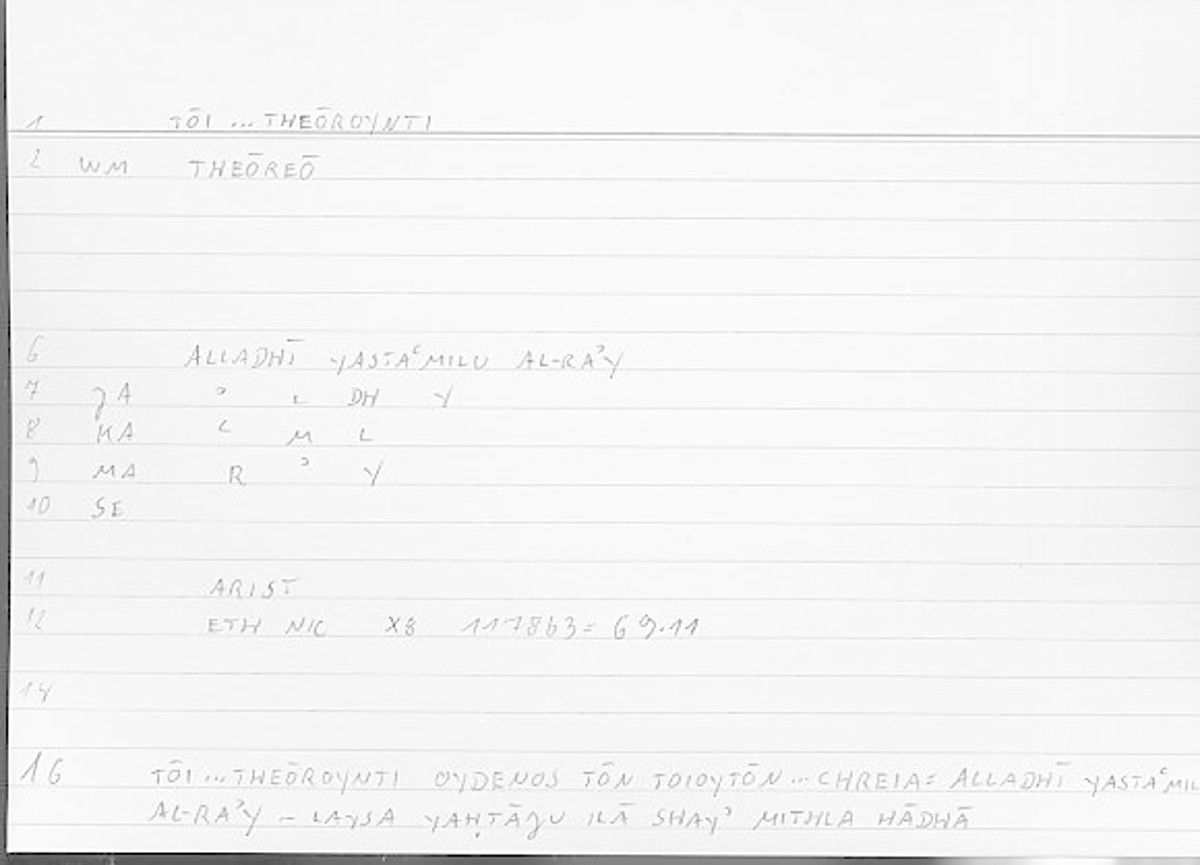 1 TŌI ... THEŌROYNTI
2 WM THEŌREŌ
6 ALLADHĪ YASTAʿMILU AL-RAʾY
7 ʒA ʾ L DH Y
8 KA ʿ M L
9 MA R ʾ Y
10 SE
11 ARIST
12 ETH NIC X8 1178b3= 69.11
14
16 TŌI ... THEŌROYNTI OYDENOS TŌN TOIOYTŌN ... CHREIA= ALLADHĪ YASTAʿMIL
AL-RAʾY – LAYSA YAḤTĀʒU ILĀ SHAYʾ MITHLA HĀDHĀ